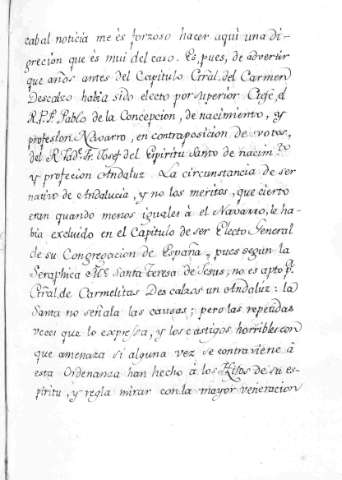 cabal noticia me és forzoso hacer aqui una di-
greción que és mui del caso. Es, pues, de advertir
que años antes del Capitulo Gral. del Carmen
Descalzo habia sido electo por superior Gefe, el
R.P.F. Pablo de la Concepcion, de nacimiento, y
profesion Navarro, en contraposicion de votos,
del R. Pad.e Fr. Josef del Espiritu Santo de nacim.to
y profecion Andaluz. La circunstancia de ser
nativo de Andalucia, y no los meritos, que cierto
eran quando menos iguales á el Navarro, le ha-
bia excluido en el Capitulo de ser Electo General
de su Congregacion de España, pues según la
Seraphica M.e Santa Teresa de Jesus; no es apto p.a
Gral. de Carmelitas Descalzos un Andaluz: la
Santa no señala las causas; pero las repetidas
veces que lo expresa, y los castigos horribles con
que amenaza si alguna vez se contraviene á
esta Ordenanza han hecho á los de su es-
piritu, y regla mirar con la mayor veneracion